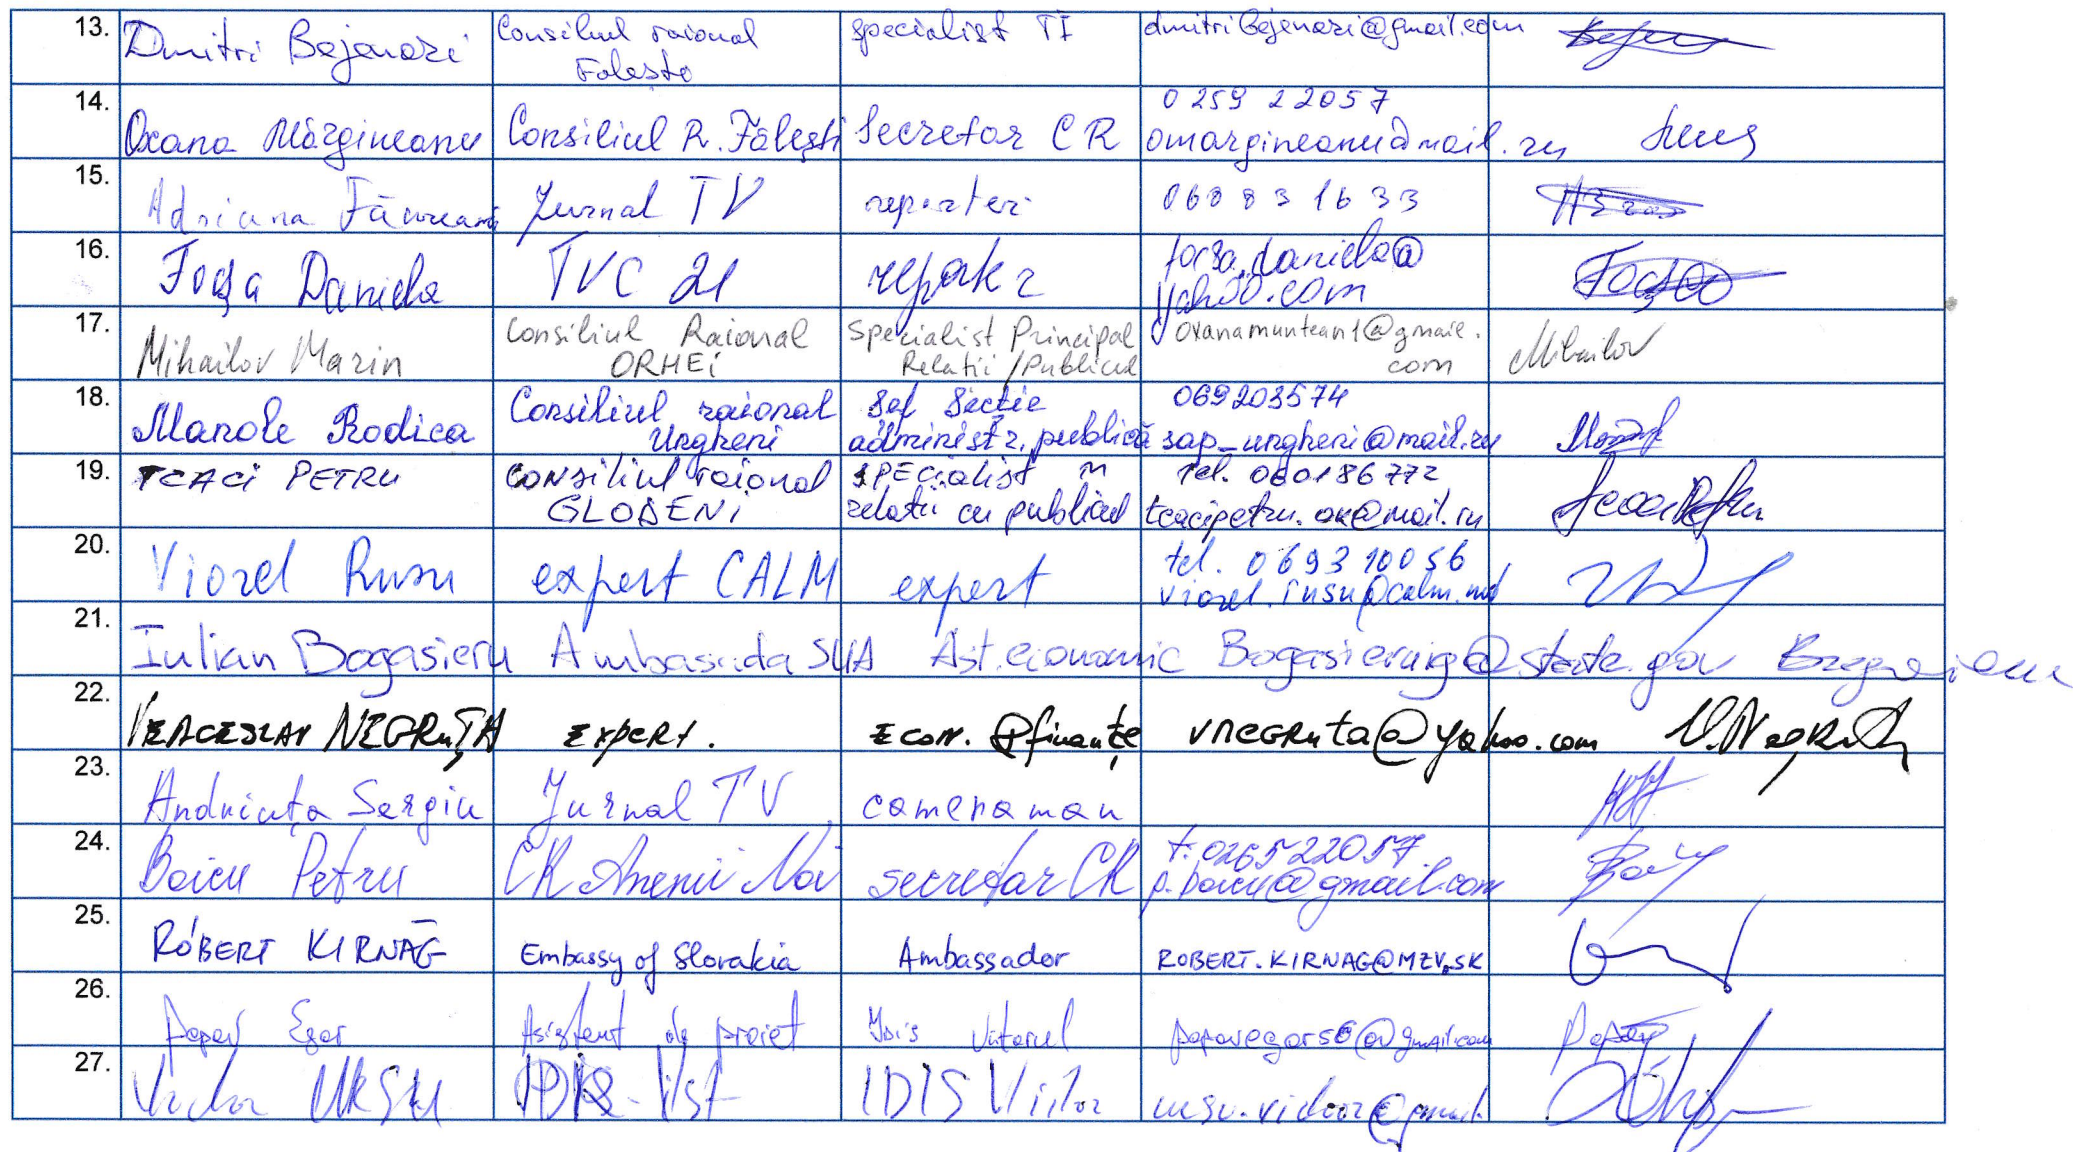 13. Dmitri Bejenari Consiliul raional specialist TI dmitribejenari@gmail.com
Falesto
14. Oxana Mărgineanu Consiliul R. Fălești Secretar CR 0 259 2 2057
omargineanu@mail.ru
15. Adriana Jurnal TV reporter 068831633
16. Focșa Daniela TVC 21 reporter focsa.daniela@
yahoo.com Focșa
17. Mihailov Marin Consiliul Raional Specialist Principal oxanamuntean1@gmail.
ORHEi Relatii / Publicul com Mihailov
18. Manole Rodica Consiliul raional Șef Secție 069203574
Ungheni administr. publică sap_ungheni@mail.ru
19. TCACI PETRU Consiliul raional SPECialist în tel. 060186772
GLODENi relatii cu publicul tcacipetru.ok@mail.ru
20. Viorel Rusu expert CALM expert tel. 069310056
viorel.rusu@calm.md
21. Iulian Bogasieru Ambasada SUA Ast. economic Bogasieruig@state.gov
22. VEACESLAV NEGRUȚA EXPERT. ECON. & finanțe vnegruta@yahoo.com V. Negruta
23. Andriuța Sergiu Jurnal TV cameraman
24. Boicu Petru CR Anenii Noi secretar CR t. 026522057
p.boicu@gmail.com
25. RÓBERT KIRNÁG Embassy of Slovakia Ambassador ROBERT.KIRNAG@MZV.SK
26. Popov Egor Asistent de proiect Idis Viitorul popovegors6@gmail.com
27. Victor URSU IDIS Viitor ursu.victor@gmail.